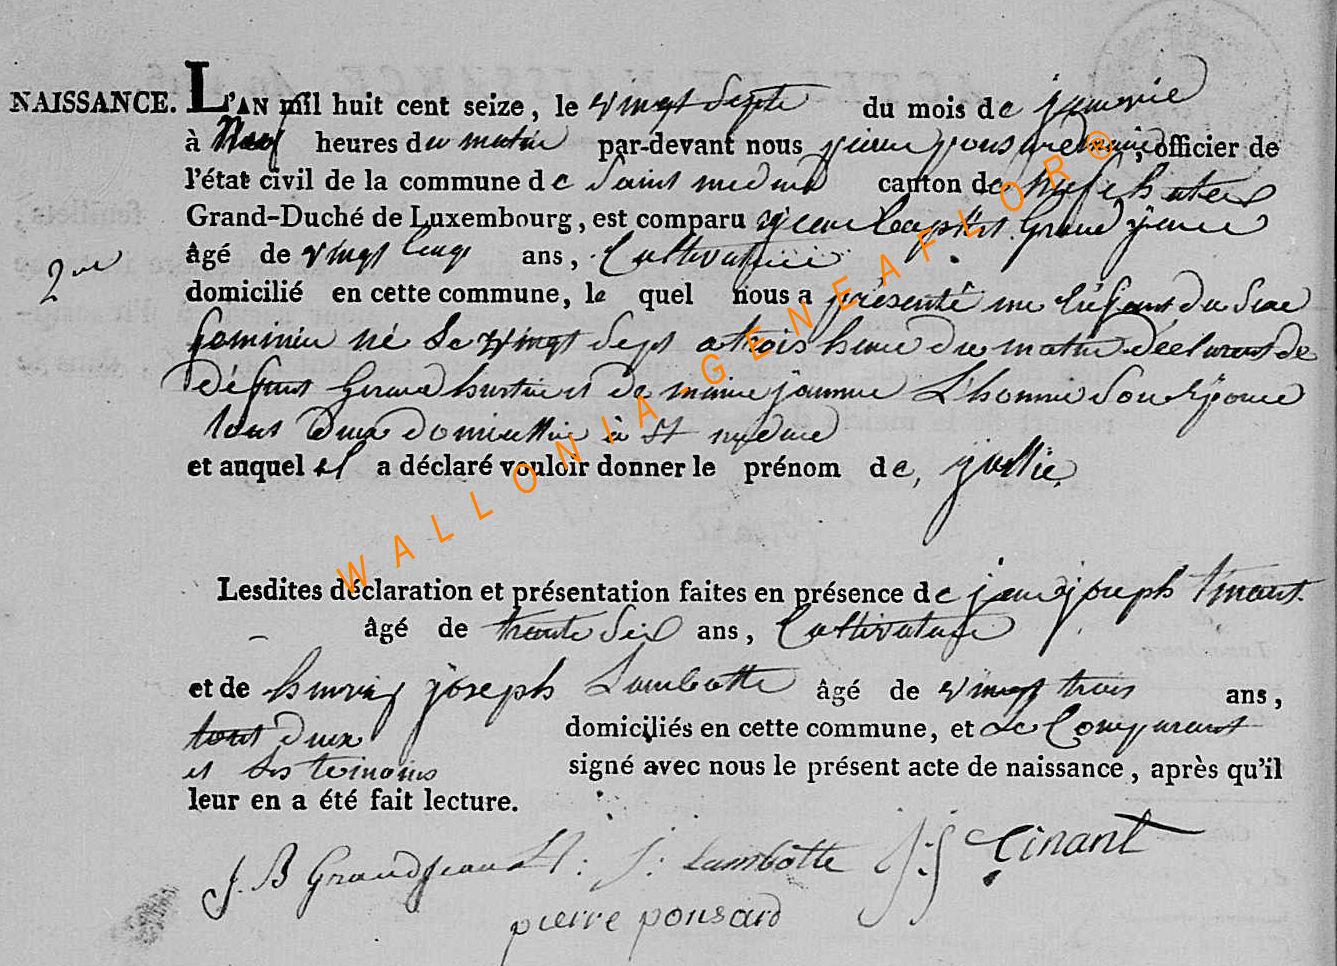 NAISSANCE. L'AN mil huit cent seize, le vingt septe du mois de janvrie
à neuf heures du matin par-devant nous pierre ponsard maire, officier de
l'état civil de la commune de Saint medard canton de neufchateau
Grand-Duché de Luxembourg, est comparu jean baptist Grand jean
2me âgé de vingt cinq ans, Cultivateur
domicilié en cette commune, le quel nous a présenté un enfant du sexe
feminin né le vingt sept a trois heure du matin déclarant de
défunt Gerard et de marie jeanne L'homme son épouse
tous deux domicillié à St medard
et auquel il a déclaré vouloir donner le prénom de, jullie,
Lesdites déclaration et présentation faites en présence de jean joseph tinant
âgé de trente six ans, Cultivateur
et de henri joseph Lambotte âgé de vingt trois ans,
tout deux domiciliés en cette commune, et le Comparant
et les temoins signé avec nous le présent acte de naissance, après qu'il
leur en a été fait lecture.
J. B Grandjean H: J: Lambotte J:J Tinant
pierre ponsard
WALLONIA-GENEAFLOR®